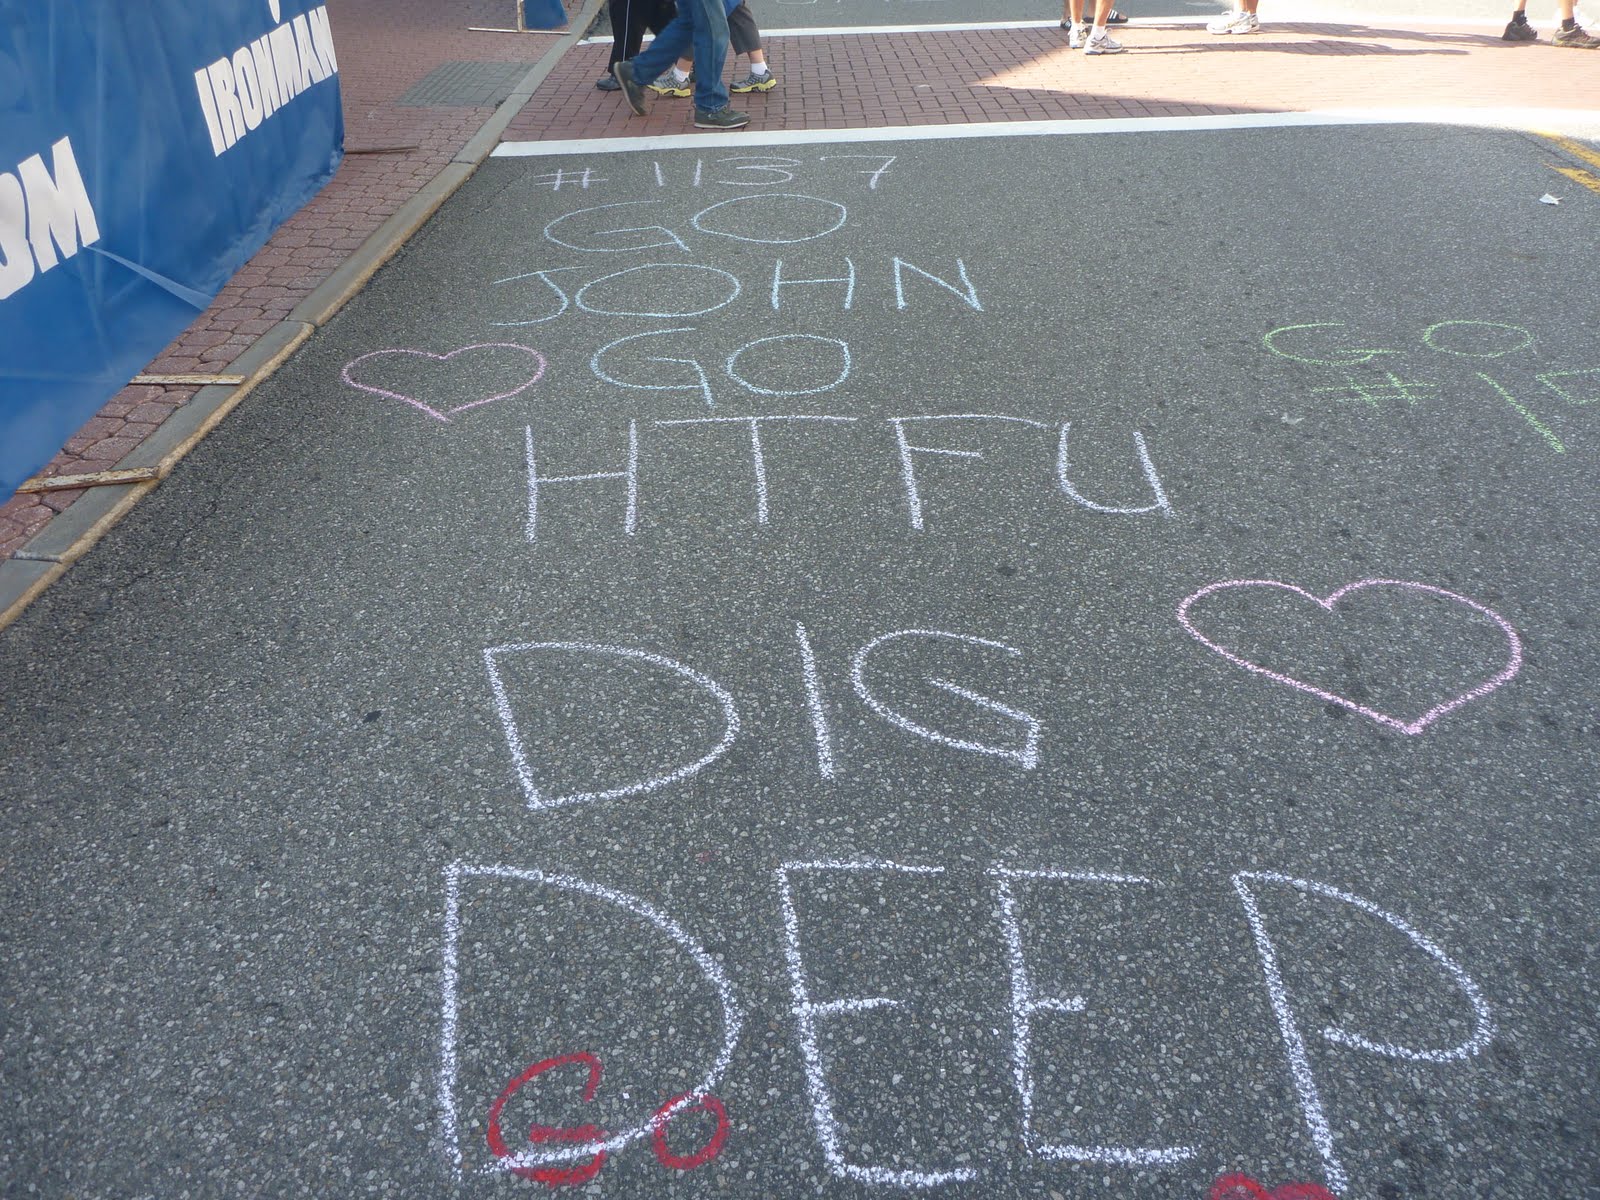 IRONMAN
OM
#1137
GO
JOHN
GO
HTFU
DIG
DEEP
GO
GO